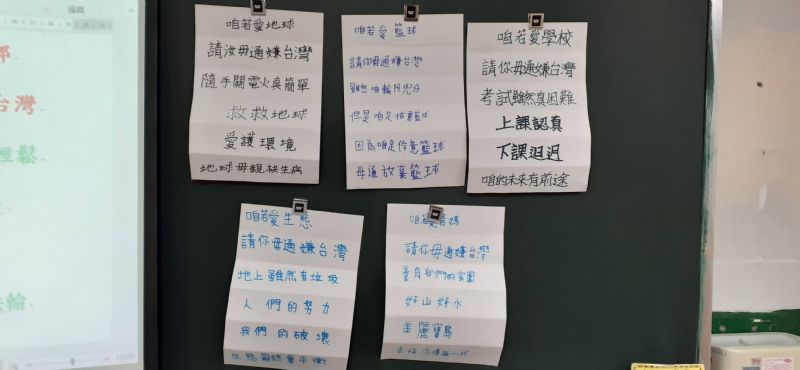 咱若愛地球
請汝毋通嫌台灣
隨手關電火真簡單
救救地球
愛護環境
地球毋親袂生病
咱若愛籃球
請你毋通嫌台灣
雖然咱輸
但是咱足佮意籃球
因為咱足佮意籃球
毋通放棄籃球
咱若愛學校
請你毋通嫌台灣
考試雖然真困難
上課認真
下課迌迌
咱的未來有前途
咱若愛生態
請你毋通嫌台灣
地上雖然有垃圾
人們的努力
我們的破壞
生態最終會平衡
咱若愛爸媽
請你毋通嫌台灣
我們的家園
好山好水
美麗寶島
台灣
輕鬆
輸